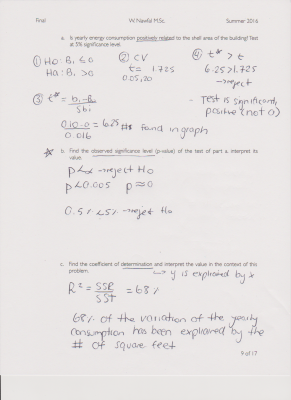 Final W. Nawfal M.Sc. Summer 2016
a. Is yearly energy consumption positively related to the shell area of the building? Test
at 5% significance level.
① H0: B₁ ≤ 0 ② CV ④ t* > t
HA: B₁ > 0 t = 1.725 6.25 > 1.725
0.05, 20 → reject
③ t* = b₁ - B₁ - Test is significant,
Sb₁ positive (not 0)
0.10 - 0 = 6.25 #s found in graph
0.016
b. Find the observed significance level (p-value) of the test of part a, interpret its
value.
p < α → reject H0
p < 0.005 p ≈ 0
0.5% < 5% → reject H0
c. Find the coefficient of determination and interpret the value in the context of this
problem. → y is explained by x
R² = SSR = 68%
SST
68% of the variation of the yearly
consumption has been explained by the
# of square feet
9 of 17